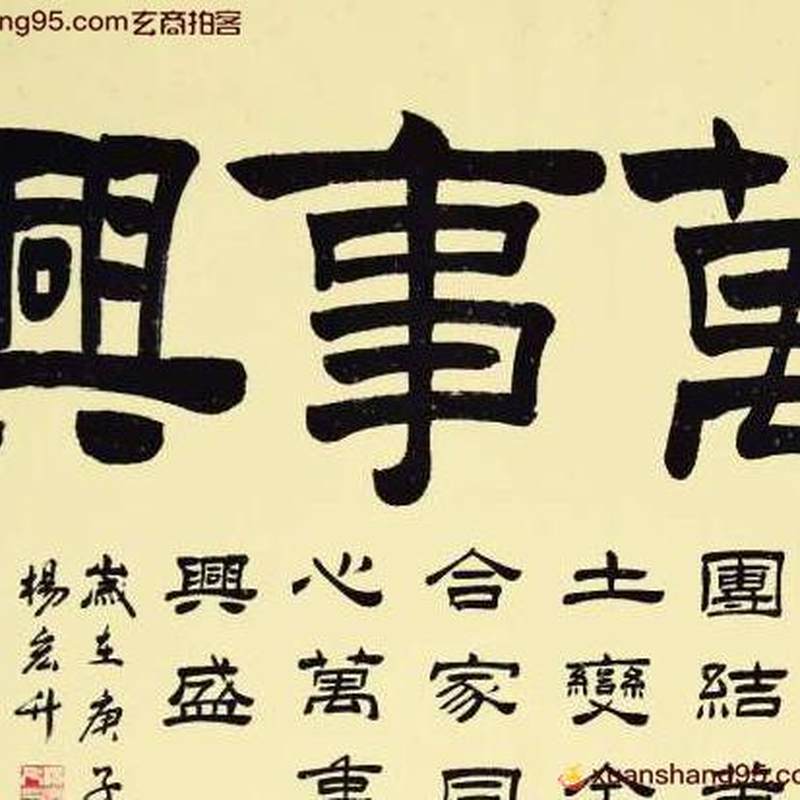 ng95.com玄商拍客
萬事興
團結
土變金
合家同
心萬事
興盛
歲在庚子
楊宏升
xuanshang95.co